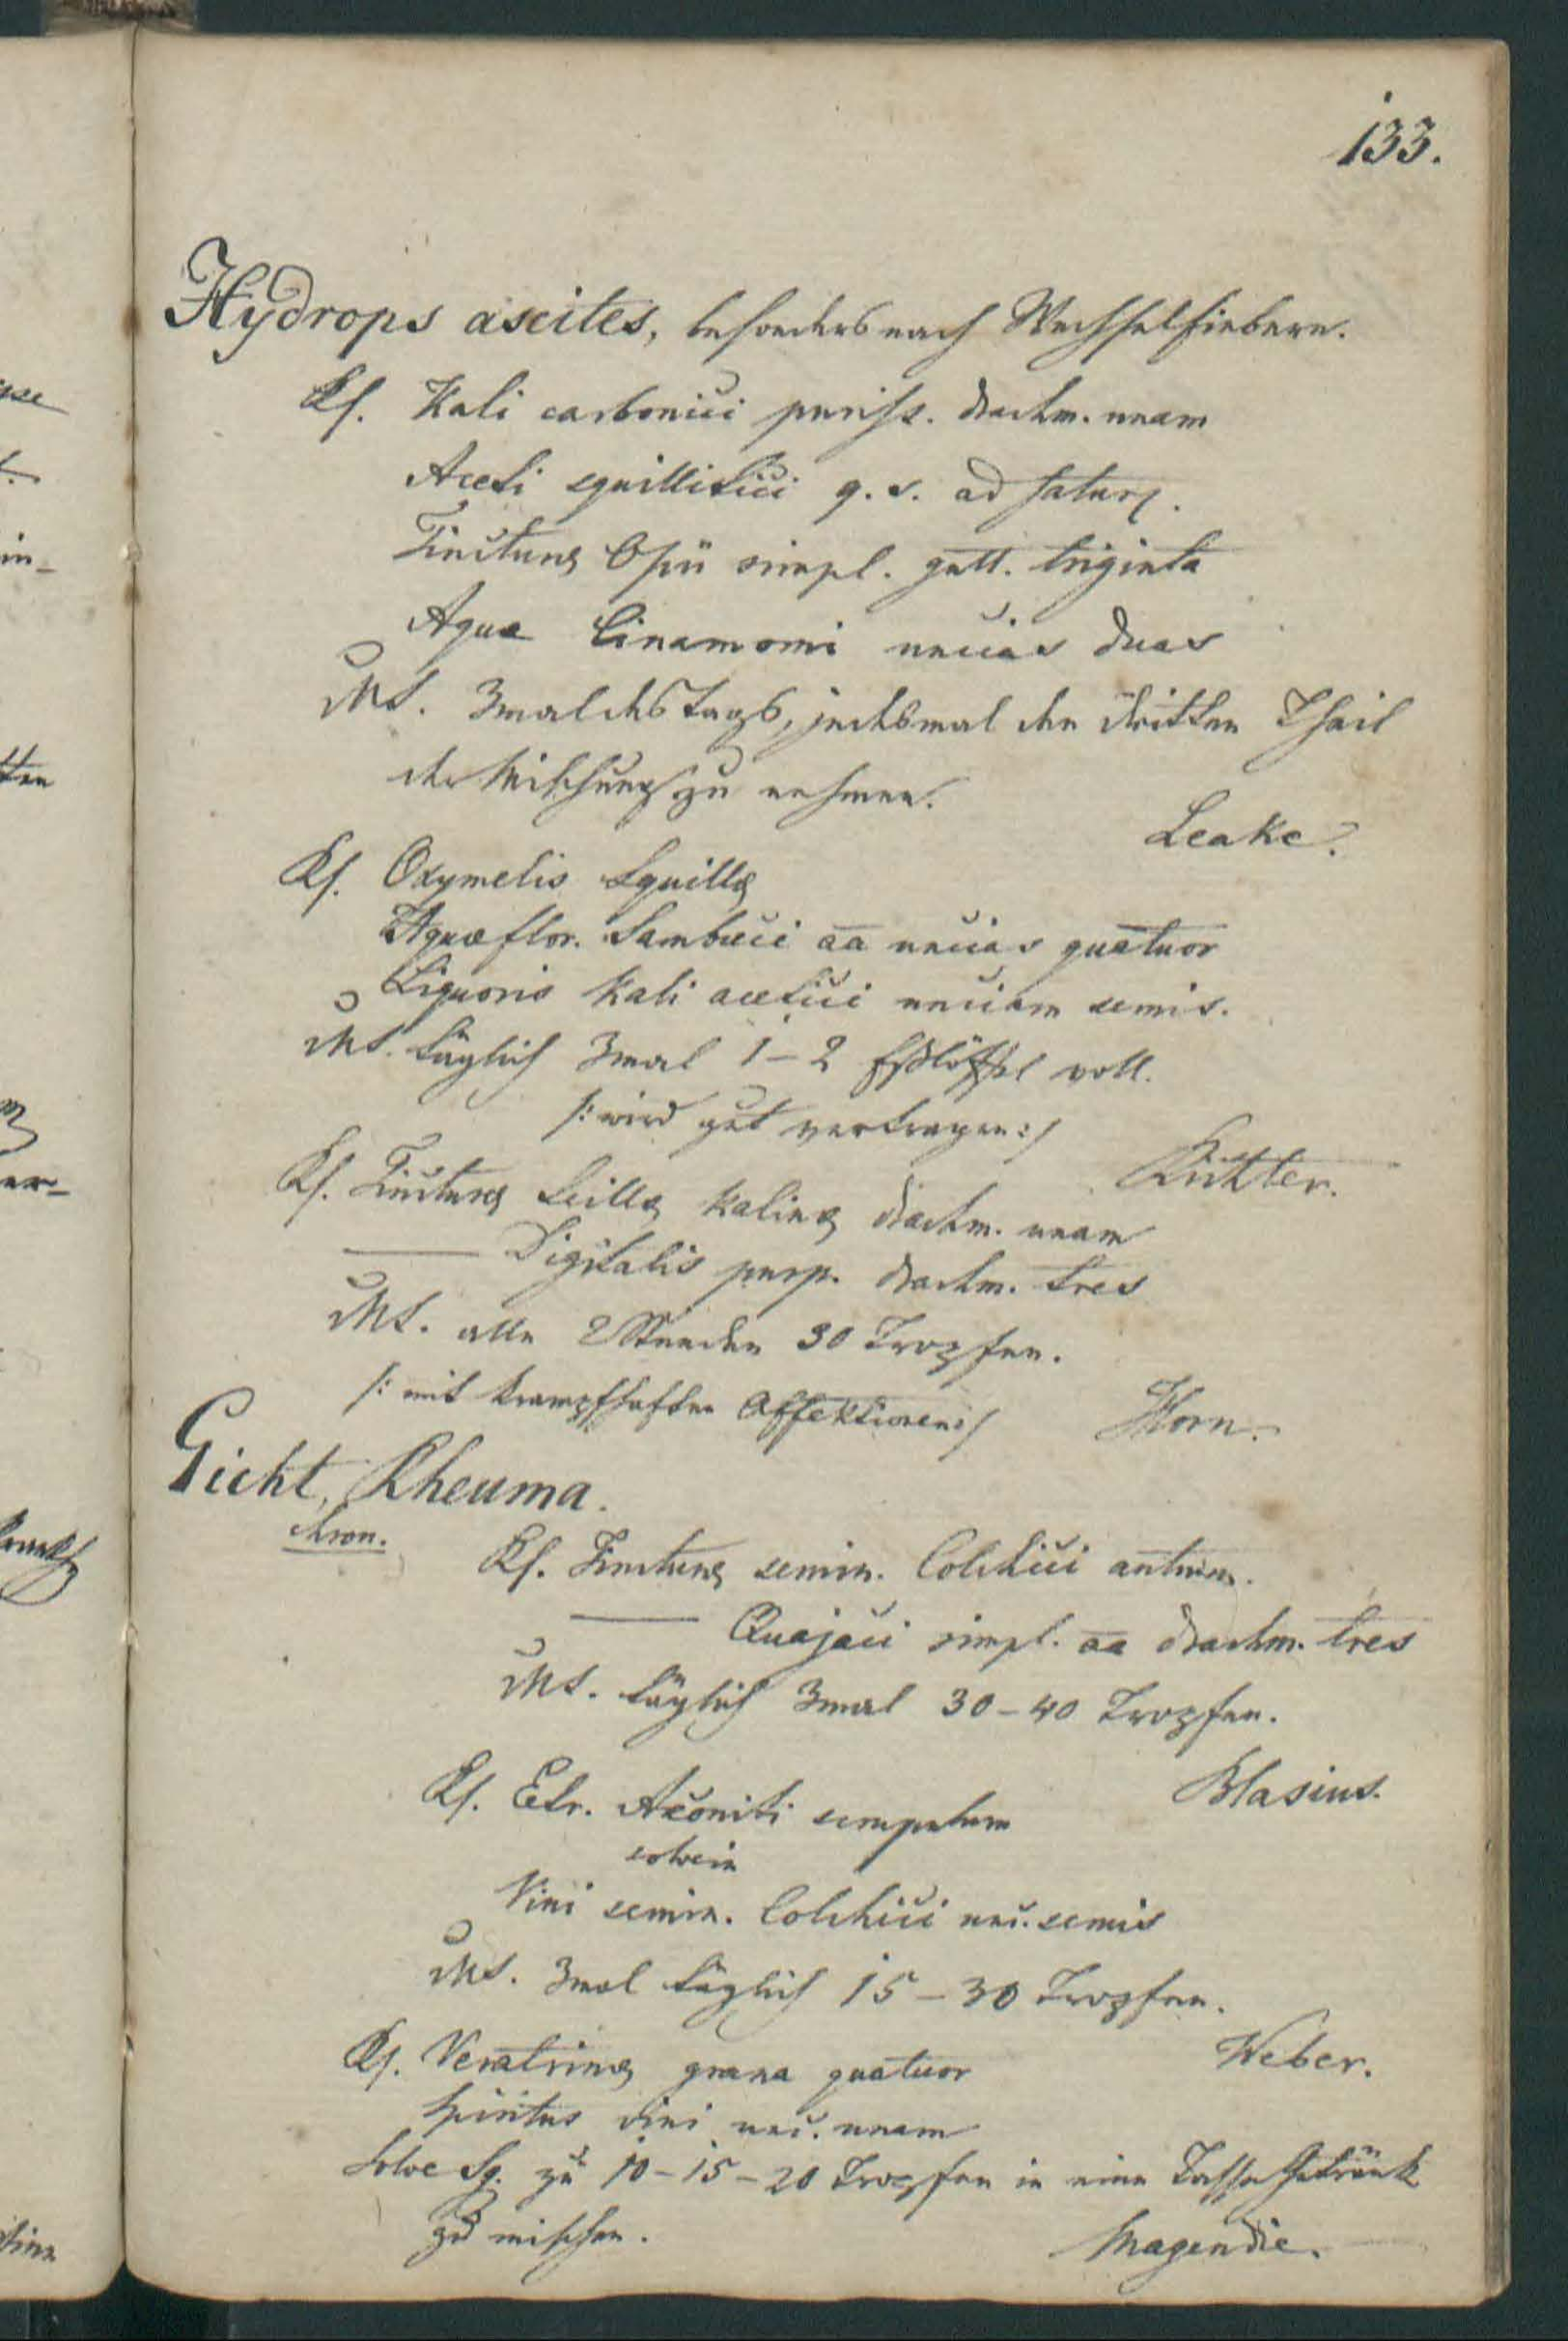 133.
Hydrops ascites, besonders nach Wechselfiebern.
Rf. Kali carbonici puriss. drachm. unam
Aceti squillitici q. s. ad satur.
Tincturae Opii simpl. gutt. triginta
Aquae Cinamomi uncias duas
MS. 3mal des Tags, jedesmal den dritten Theil
der Mischung zu nehmen.
Leake.
Rf. Oxymelis Squillae
Aquae flor. Sambuci aa uncias quatuor
Liquoris Kali acetici unciam semis.
MS. täglich 3mal 1-2 Eßlöffel voll.
/: wird gut vertragen :/
Richter.
Rf. Tincturae Scillae kalinae drachm. unam
—— Digitalis purp. drachm. tres
MS. alle 2 Stunden 30 Tropfen.
/: mit krampfhaften Affektionen :/
Horn.
Gicht, Rheuma.
chron.
Rf. Tincturae semin. Colchici autumn.
—— Guajaci simpl. aa drachm. tres
MS. täglich 3mal 30-40 Tropfen.
Blasius.
Rf. Extr. Aconiti scrupulum
solve in
Vini semin. Colchici unc. semis
MS. 3mal täglich 15-30 Tropfen.
Weber.
Rf. Veratrinae grana quatuor
Spiritus vini unc. unam
Solve Sg. zu 10-15-20 Tropfen in eine Tasse Getränk
zu mischen.
Magendie.